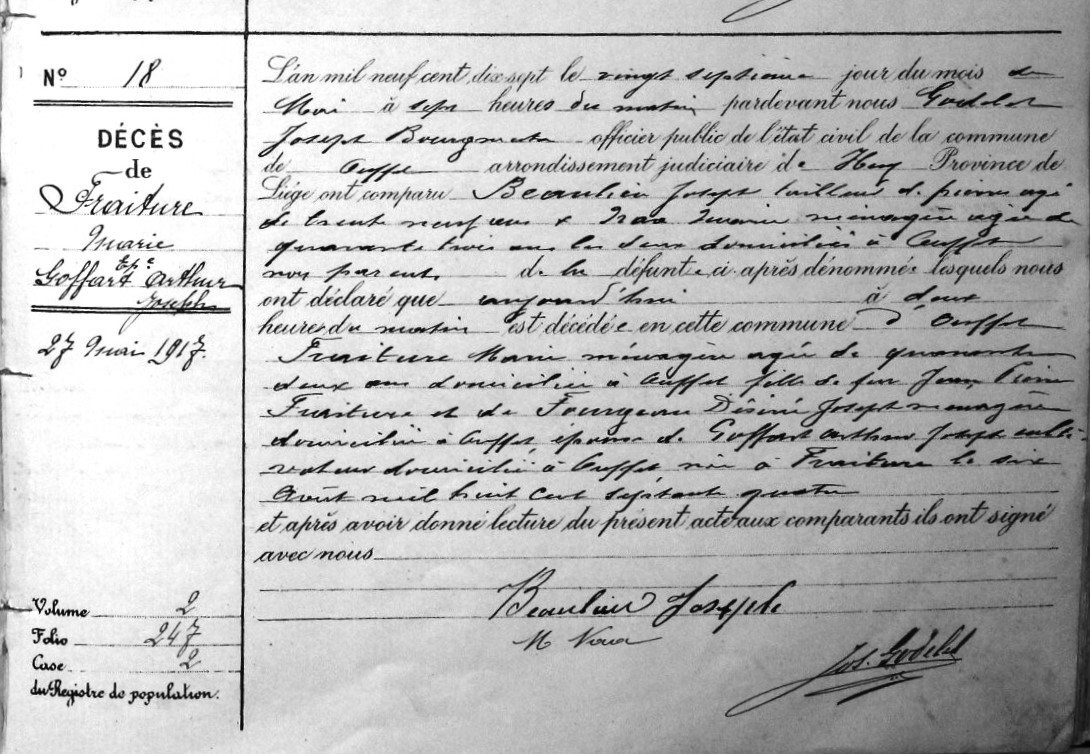 Nº 18
DÉCÈS
de
Fraiture
Marie
Epse
Goffart Arthur
Joseph
27 Mai 1917
Volume 2
Folio 247
Case 2
du Registre de population.
L'an mil neuf cent dix sept le vingt septième jour du mois de
Mai à sept heures du matin pardevant nous Godelet
Joseph Bourgmestre officier public de l'état civil de la commune
de Ouffet arrondissement judiciaire de Huy Province de
Liége ont comparu Beaulieu Joseph tailleur de pierres agé
de trente neuf ans & Marie ménagère agée de
quarante trois ans les deux domiciliés à Ouffet
non parents de la défunte ci-après dénommée lesquels nous
ont déclaré que aujourd'hui à deux
heures du matin est décédée en cette commune d'Ouffet
Fraiture Marie ménagère agée de quarante
deux ans domiciliée à Ouffet fille de feu Jean Pierre
Fraiture et de Désiré Joseph ménagère
domiciliée à Ouffet, épouse de Goffart Arthur Joseph culti-
vateur domicilié à Ouffet née à Fraiture le six
Août mil huit cent septante quatre
et après avoir donné lecture du présent acte aux comparants ils ont signé
avec nous
Beaulieu Joseph
M
Jos. Godelet